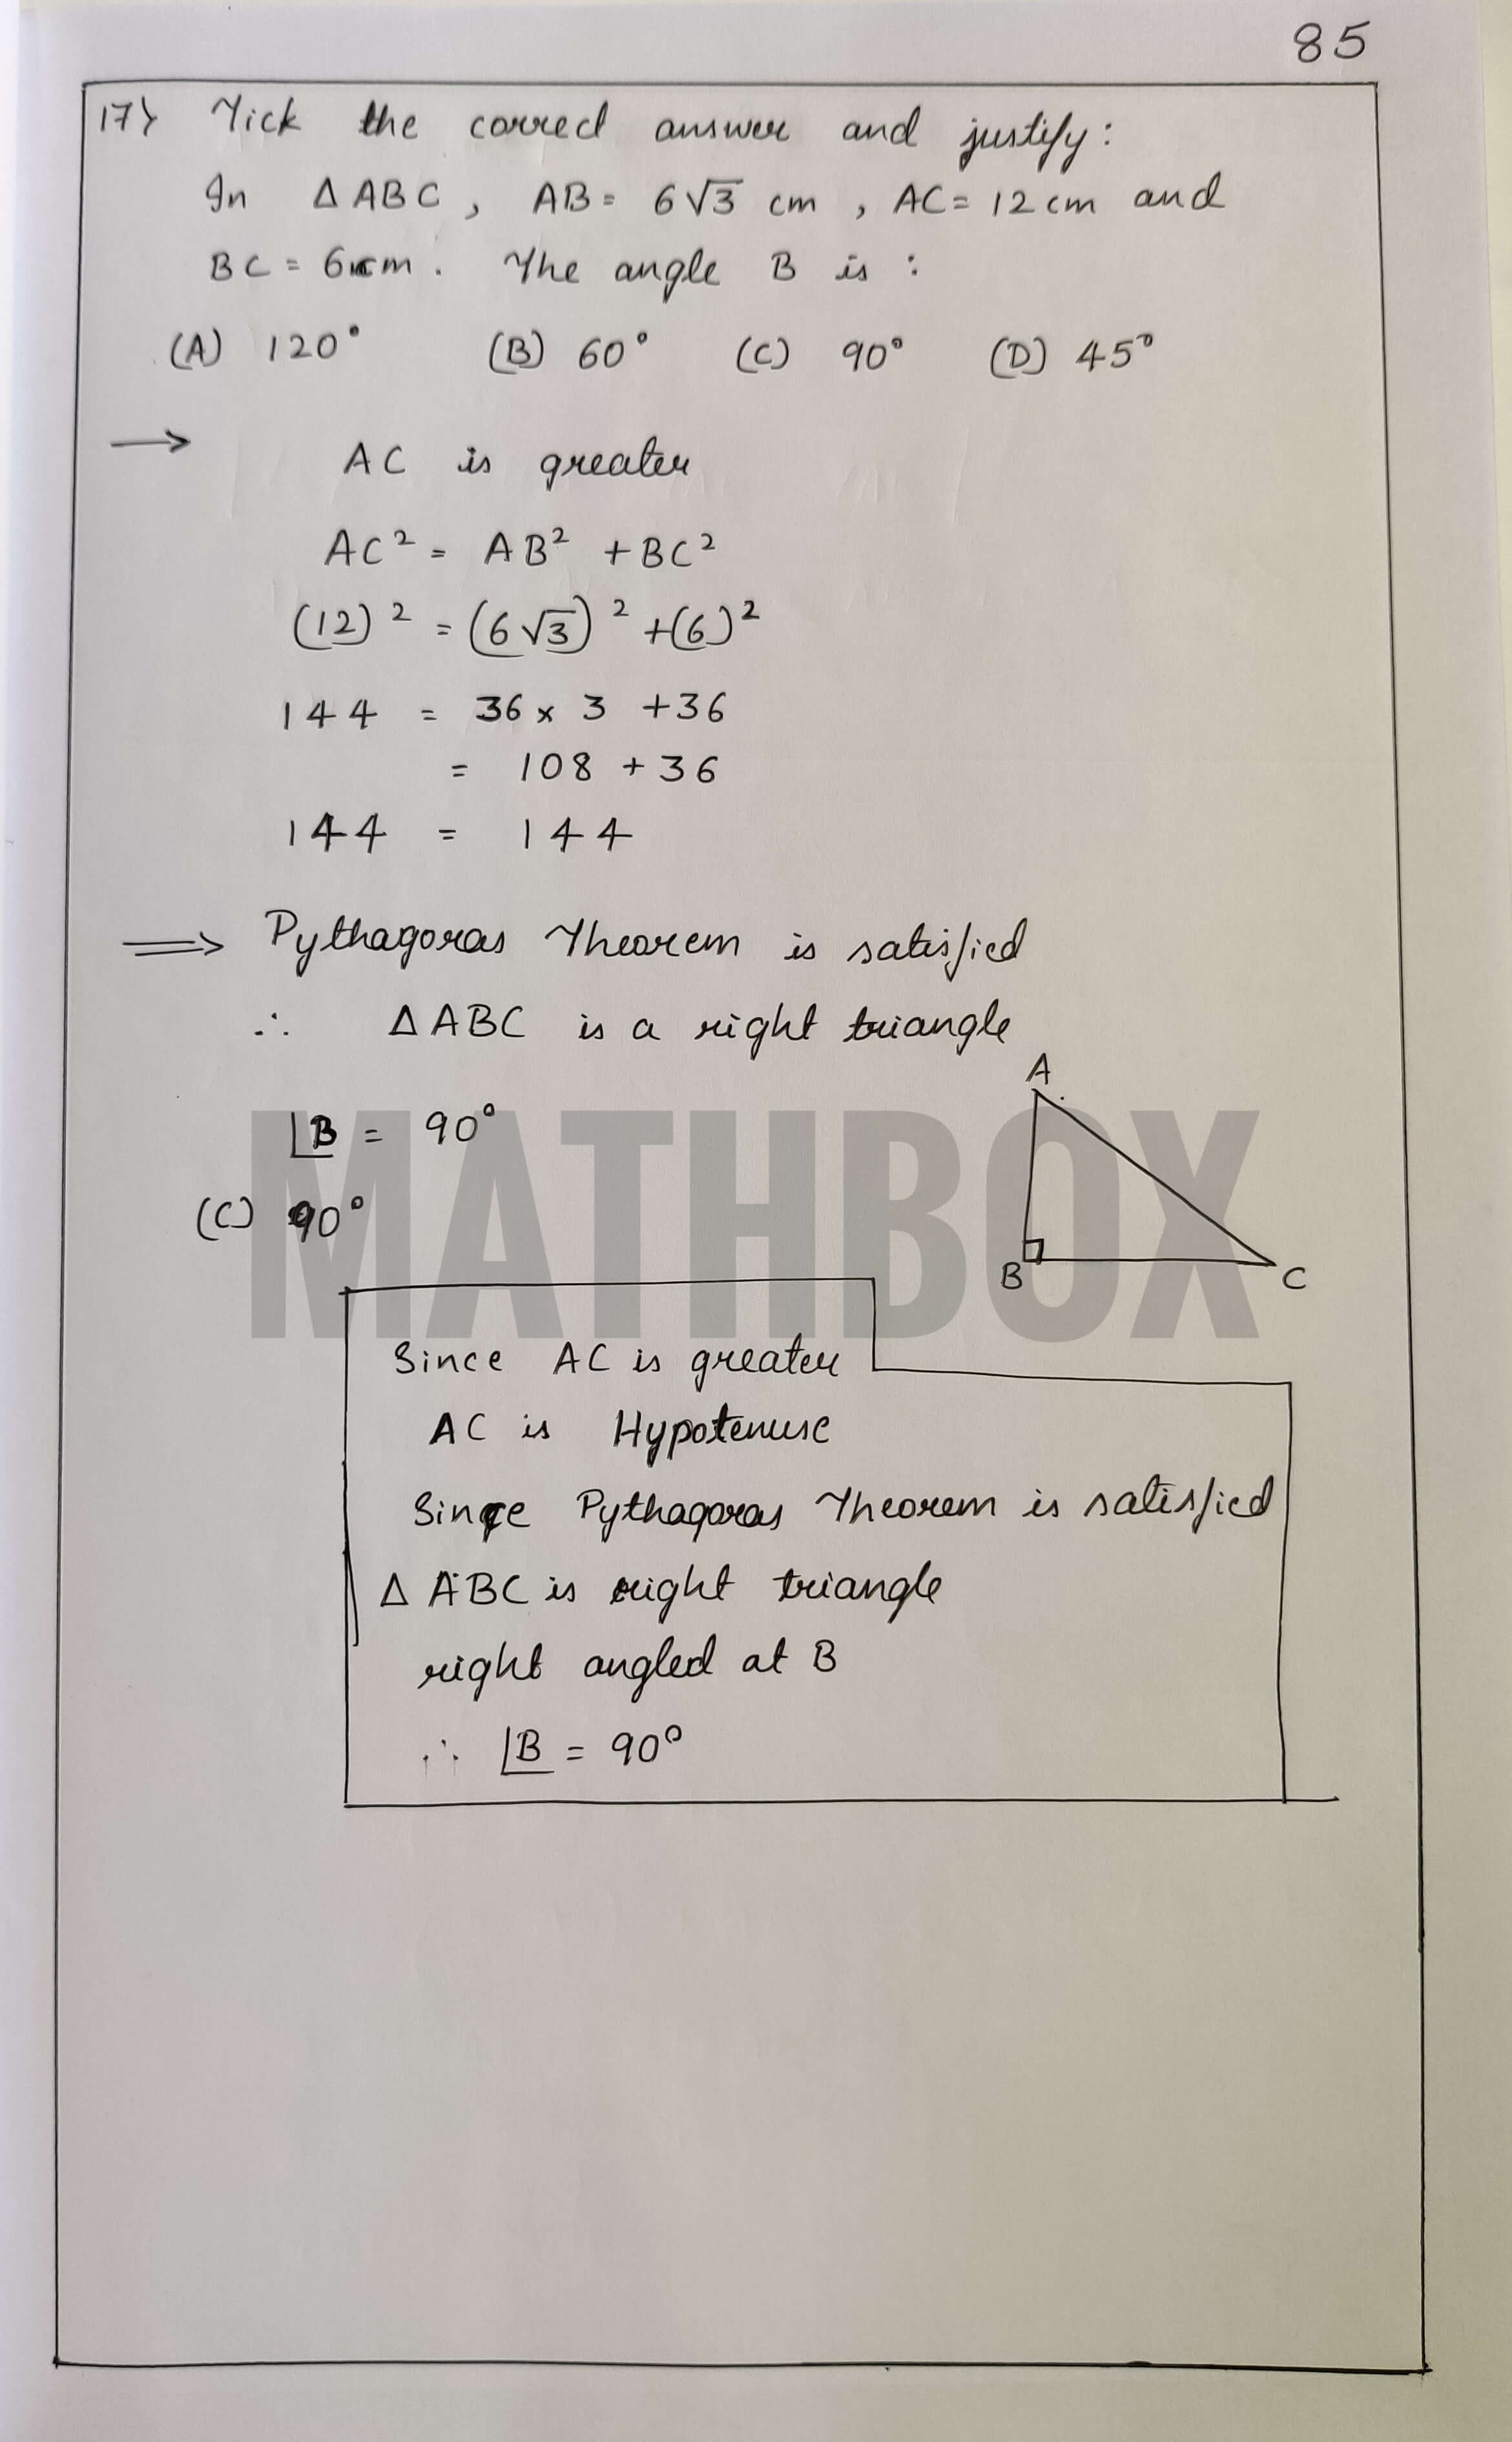 85
17) Tick the correct answer and justify:
In Δ ABC, AB = 6√3 cm, AC = 12 cm and
BC = 6 cm. The angle B is :
(A) 120° (B) 60° (C) 90° (D) 45°
→ AC is greater
AC² = AB² + BC²
(12)² = (6√3)² + (6)²
144 = 36 × 3 + 36
= 108 + 36
144 = 144
⇒ Pythagoras Theorem is satisfied
∴ Δ ABC is a right triangle
A
∠B = 90°
(C) 90°
B C
MATHBOX
Since AC is greater
AC is Hypotenuse
Since Pythagoras Theorem is satisfied
Δ ABC is right triangle
right angled at B
∴ ∠B = 90°